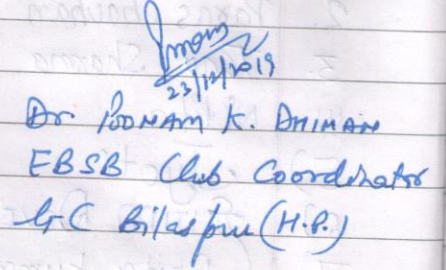 Poonam
23/12/2019
Dr POONAM K. DHIMAN
EBSB Club Coordinator
GC Bilaspur (H.P.)